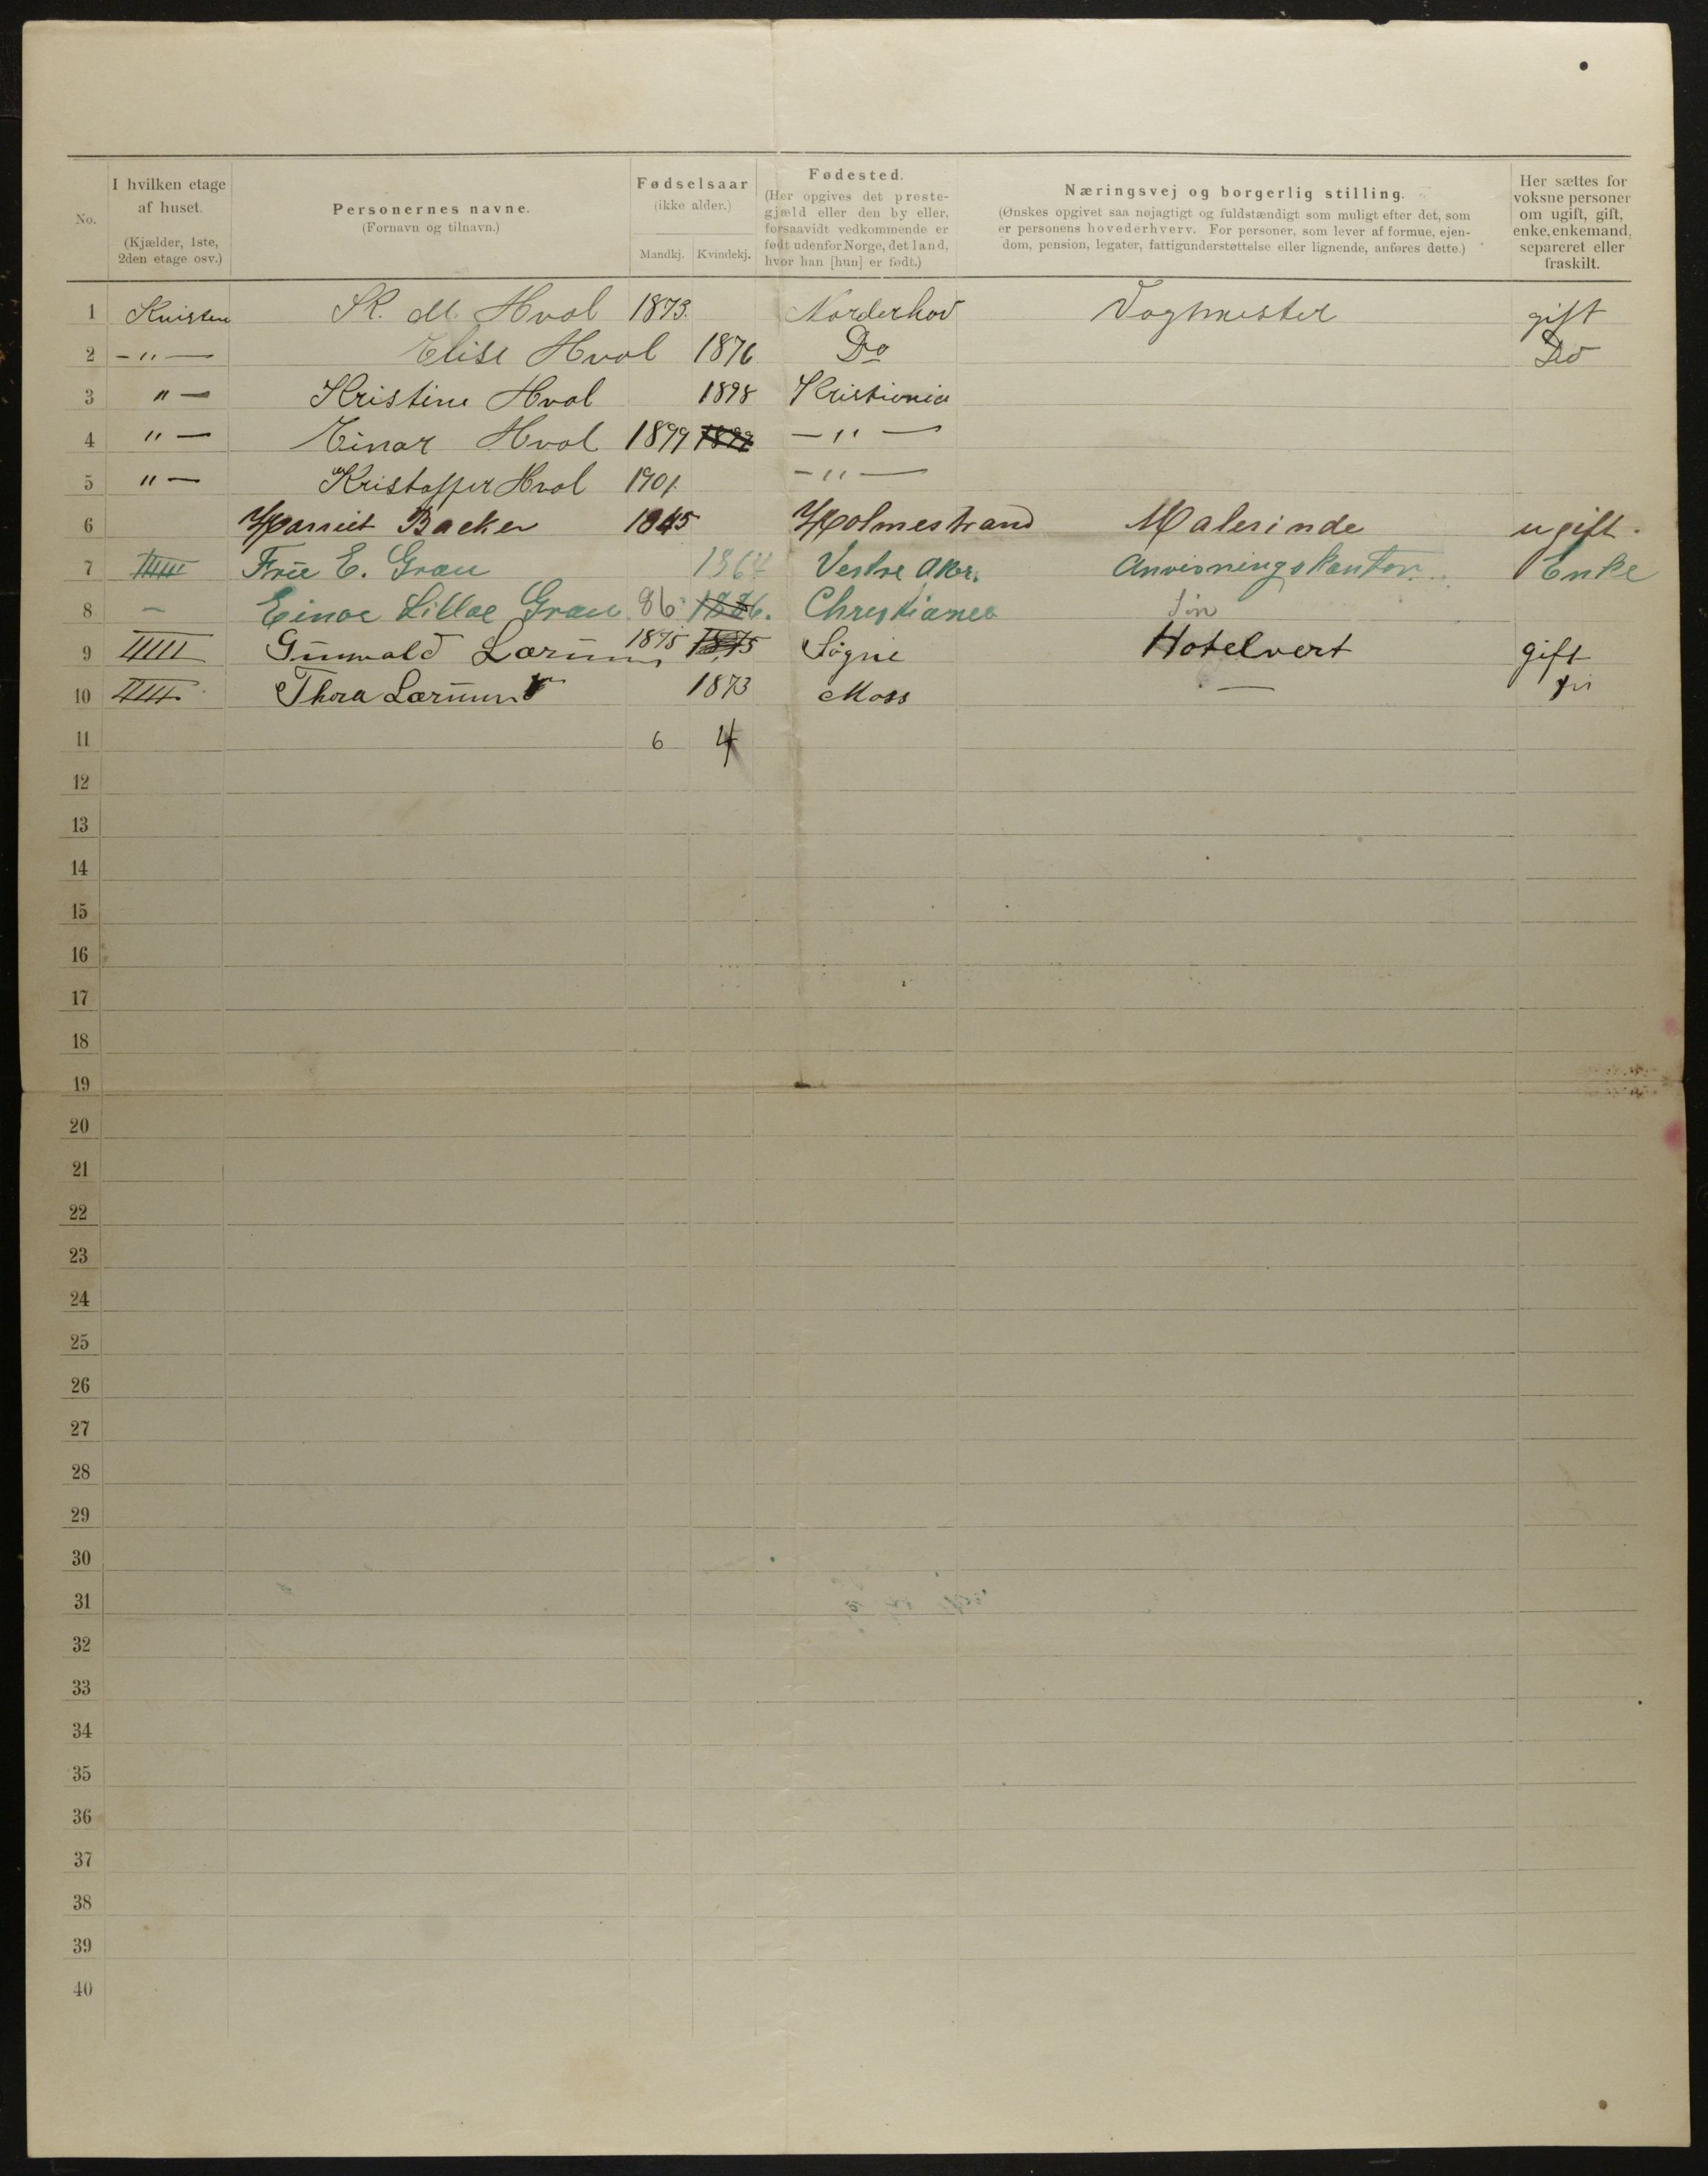 No. I hvilken etage af huset. (Kjælder, 1ste, 2den etage osv.) Personernes navne. (Fornavn og tilnavn.) Fødselsaar (ikke alder.) Mandkj. Kvindekj. Fødested. (Her opgives det prestegjæld eller den by eller, forsaavidt vedkommende er født udenfor Norge, det land, hvor han [hun] er født.) Næringsvej og borgerlig stilling. (Ønskes opgivet saa nøjagtigt og fuldstændigt som muligt efter det, som er personens hovederhverv. For personer, som lever af formue, ejendom, pension, legater, fattigunderstøttelse eller lignende, anføres dette.) Her sættes for voksne personer om ugift, gift, enke, enkemand, separeret eller fraskilt.
1 Kvisten K. M. Hval 1873. Norderhov Vogtmester gift
2 -"- Elise Hval 1876 Do Do
3 "- Kristine Hval 1898 Kristiania
4 "- Einar Hval 1899 1899 -"-
5 "- Kristoffer Hval 1901 -"-
6 Harriet Backer 1845 Holmestrand Malerinde ugift.
7 IIIII Frue E. Grau 1864 Vestre Aker. Anvisningskontor Enke
8 - Einar Lillae Grau 86 1886. Christiania Søn
9 IIIII Gunvald 1875 1875 Søgne Hotelvert gift
10 IIII Thora 1873 Moss —
11 6 4
12
13
14
15
16
17
18
19
20
21
22
23
24
25
26
27
28
29
30
31
32
33
34
35
36
37
38
39
40